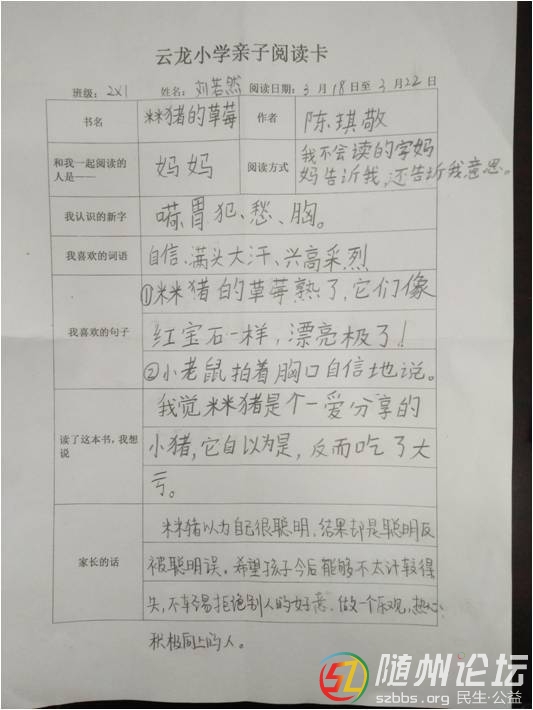 云龙小学亲子阅读卡
班级：2X1 姓名：刘若然 阅读日期：3月18日至3月22日
书名 咪咪猪的草莓 作者 陈琪敬
和我一起阅读的人是—— 妈妈 阅读方式 我不会读的字妈
妈告诉我，还告诉我意思。
我认识的新字 嗬、胃、犯、愁、胸。
我喜欢的词语 自信、满头大汗、兴高采烈
我喜欢的句子
①咪咪猪的草莓熟了，它们像
红宝石一样，漂亮极了！
②小老鼠拍着胸口自信地说。
读了这本书，我想说
我觉咪咪猪是个一爱分享的
小猪，它自以为是，反而吃了大
亏。
家长的话
咪咪猪以为自己很聪明，结果却是聪明反
被聪明误。希望孩子今后能够不太计较得
失，不轻易拒绝别人的好意。做一个乐观，热心，
积极向上的人。
随州论坛
szbbs.org 民生·公益